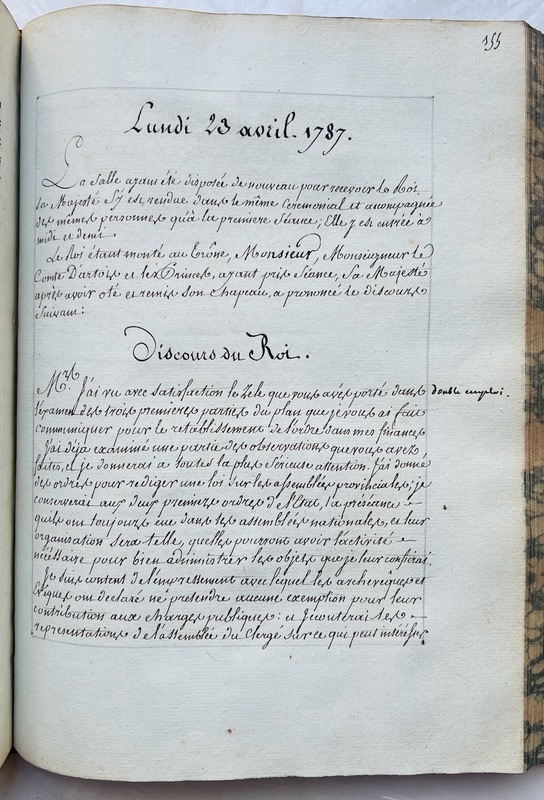 155
Lundi 23 avril. 1787.
La Salle ayant été disposée de nouveau pour recevoir le Roi.
Sa Majesté S'y est rendue dans le même Cérémonial et acompagnée
des mêmes personnes qu'à la premiere Séance; Elle y est entrée à
midi et demi.
Le Roi étant monté au Trône, Monsieur, Monseigneur le
Comte D'artois et les Princes, ayant pris Séance, Sa Majesté
après avoir oté et remis son chapeau, a prononcé le discours
Suivant:
Discours du Roi.
Mrs. J'ai vu avec satisfaction le Zele que vous avés porté dans
double emploi.
l'éxamen des trois premieres parties du plan que je vous ai fait
communiquer pour le rétablissement de l'ordre dans mes finances
J'ai déja examiné une partie des observations que vous avés
faites, et je donnerai a toutes la plus sérieuse attention. J'ai donné
des ordres pour rediger une loi sur les assemblées provinciales; je
conserverai aux deux premiers ordres de l'Etat, la préséance
qu'ils ont toujours eue dans les assemblées nationales, et leur
organisation Sera telle, qu'elles pourront avoir l'activité
nécéssaire pour bien administrer les objets que je leur confierai.
Je suis content de l'empressement avec lequel les archevêques et
Evêques ont declaré ne prétendre aucune exemption pour leur
contribution aux charges publiques: et J'écouterai les
représentations de l'assemblée du Clergé sur ce qui peut intérésser